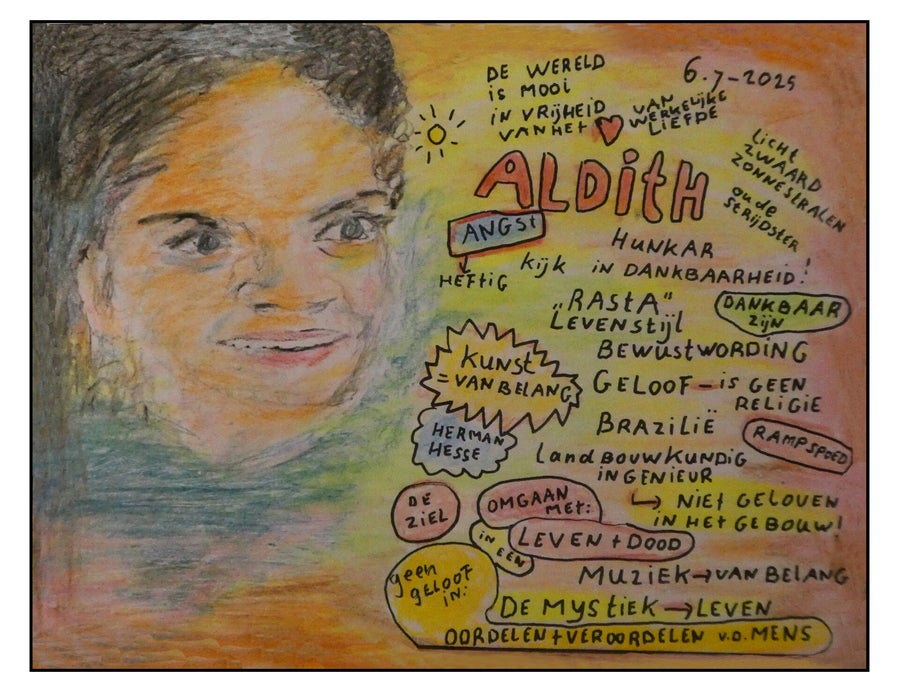 DE WERELD
is MOOI
IN VRIJHEID
VAN HET
VAN
WERKELIJKE
LIEFDE
6.7-2025
LICHT
ZWAARD
ZONNESTRALEN
oude
STRIJDSTER
ALDITH
ANGST
HEFTIG
HUNKAR
kijk IN DANKBAARHEID!
„RASTA"
LEVENSTIJL
DANKBAAR
ZIJN
BEWUSTWORDING
KUNST
= VAN BELANG
GELOOF – IS GEEN
RELIGIE
BRAZILIË
RAMPSPOED
HERMAN
HESSE
LANDBOUWKUNDIG
INGENIEUR
NIET GELOVEN
IN HET GEBOUW!
DE
ZIEL
OMGAAN
MET:
IN EEN
LEVEN + DOOD
MUZIEK → VAN BELANG
geen
GELOOF
IN:
DE MYSTIEK → LEVEN
OORDELEN + VEROORDELEN v.d. MENS